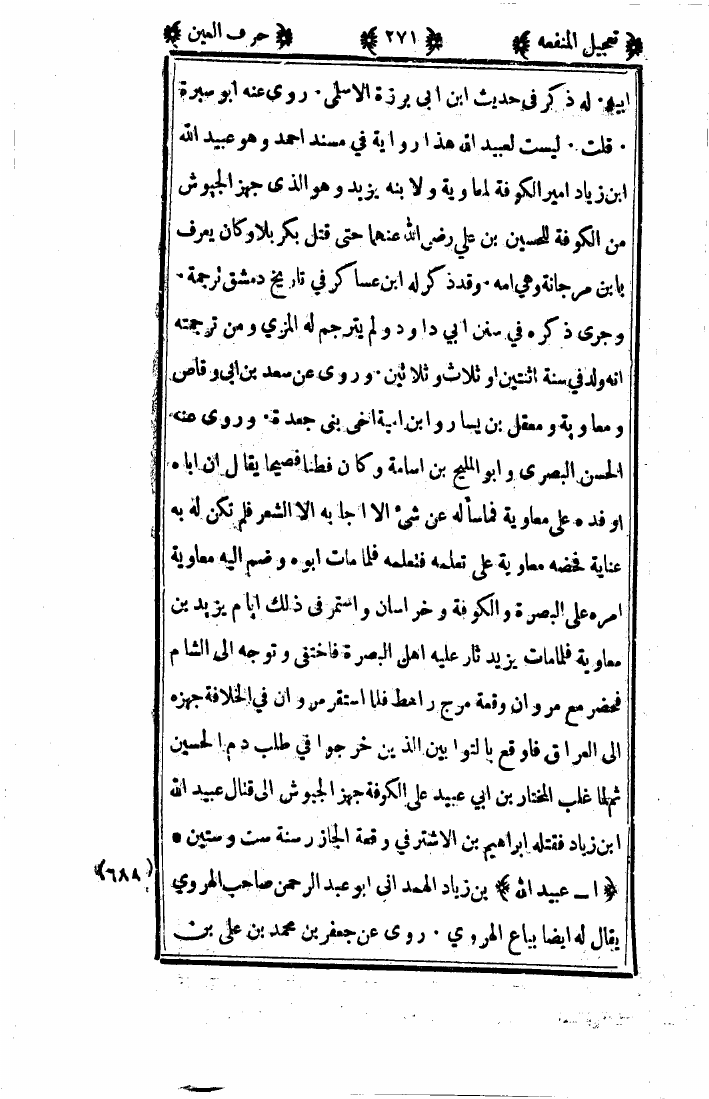 ﴿ تعجيل المنفعه ﴾ ﴿ ٢٧١ ﴾ ﴿ حرف العين ﴾
ابيه · له ذكر فى حديث ابن ابى برزة الاسلمى · روى عنه ابو سبرة
· قلت · ليست لعبيد الله هذا رواية في مسند احمد وهو عبيد الله
ابن زياد امير الكوفة لمعاوية ولابنه يزيد وهو الذى جهز الجيوش
من الكوفة للحسين بن علي رضى الله عنهما حتى قتل بكربلا وكان يعرف
بابن مرجانة وهي امه · وقد ذكر له ابن عساكر في تاريخ دمشق ترجمة ·
وجرى ذكره في سنن ابي داود ولم يترجم له المزي ومن ترجمته
انه ولد في سنة اثنتين او ثلاث وثلاثين · وروى عن سعد بن ابى وقاص
ومعاوية ومعقل بن يسار وابن امية اخى بنى جعدة · وروى عنه
الحسن البصرى وابو المليح بن اسامة وكان فطنا فصيحا يقال ان اباه
اوفده على معاوية فما سأله عن شئ الا اجابه الا الشعر فلم تكن له به
عناية فحضه معاوية على تعلمه فتعلمه فلما مات ابوه وضم اليه معاوية
امره على البصرة والكوفة وخراسان واستمر فى ذلك ايام يزيد بن
معاوية فلما مات يزيد ثار عليه اهل البصرة فاختفى وتوجه الى الشام
فحضر مع مروان وقعة مرج راهط فلما استقر مروان في الخلافة جهزه
الى العراق فاوقع بالتوابين الذين خرجوا في طلب دم الحسين
ثم لما غلب المختار بن ابي عبيد على الكوفة جهز الجيوش الى قتال عبيد الله
ابن زياد فقتله ابراهيم بن الاشتر في وقعة الجازر سنة ست وستين *
﴿ ا ــ عبيد الله ﴾ بن زياد الهمدانى ابو عبد الرحمن صاحب الهروي (٦٨٨)
يقال له ايضا بياع الهروي · روى عن جعفر بن محمد بن على بن